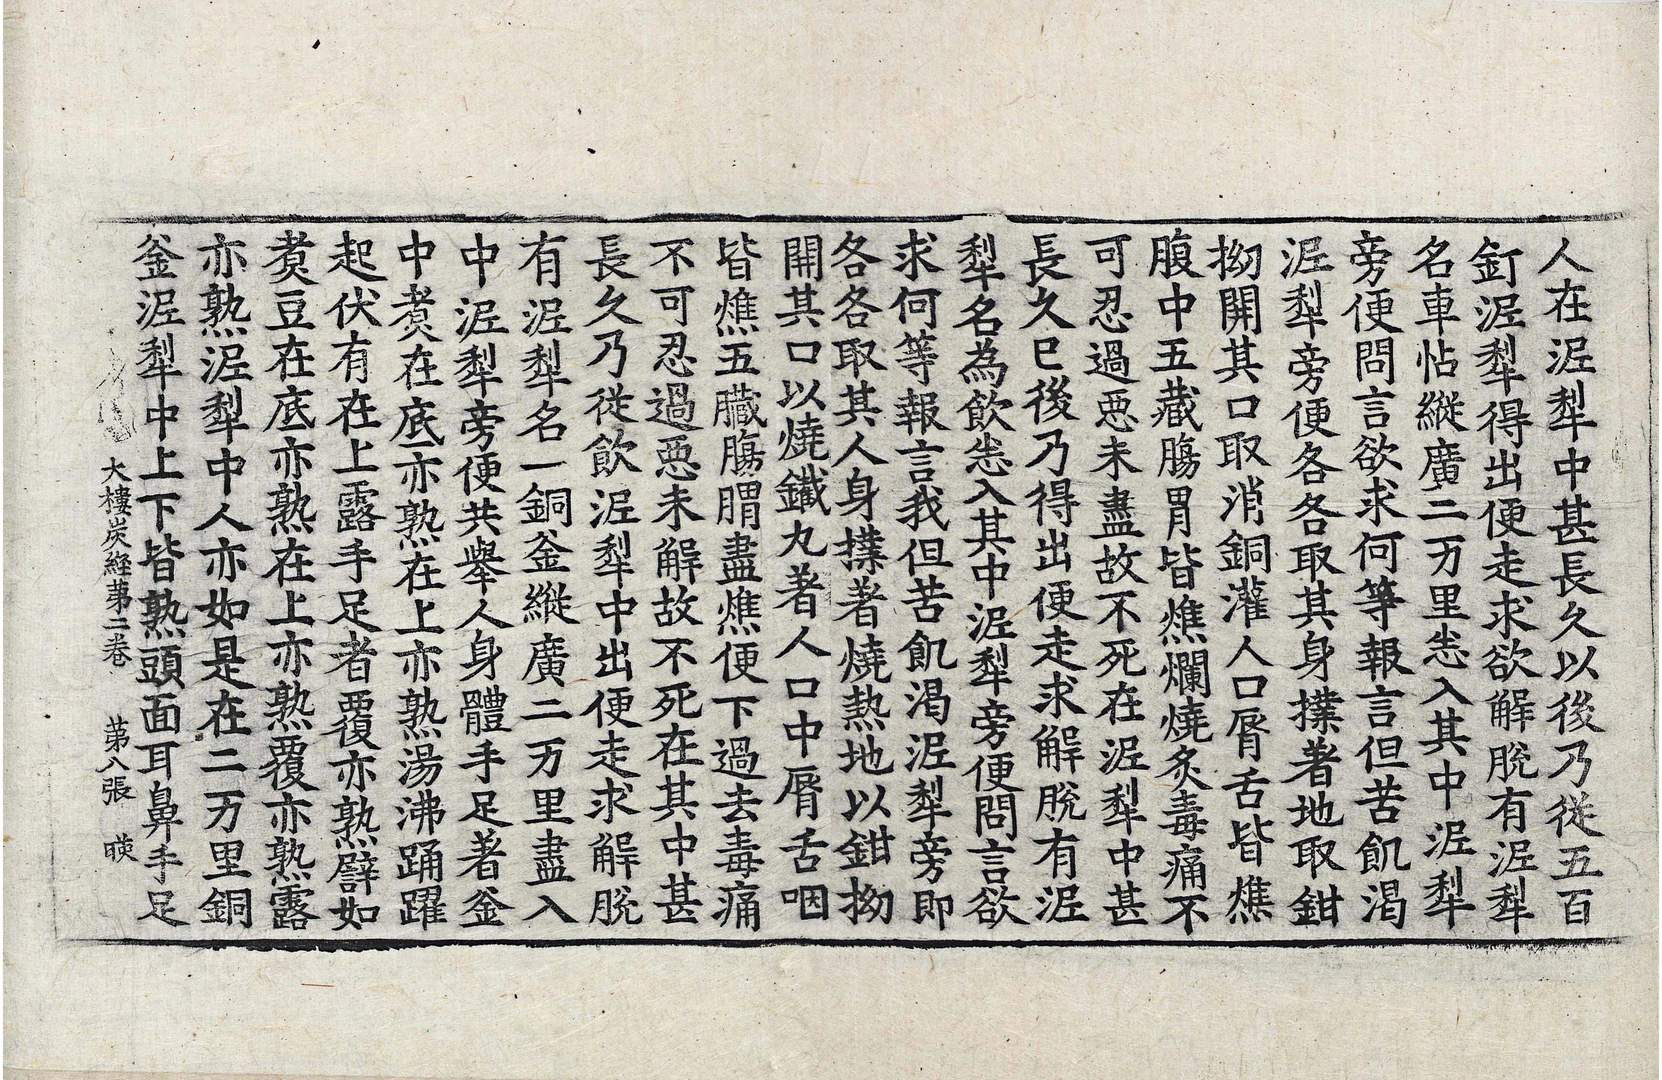 人在泥犁中甚長久以後乃從五百
釘泥犁得出便走求欲解脫有泥犁
名車怗縱廣二万里恚入其中泥犁
旁便問言欲求何等報言但苦飢渴
泥犁旁便各各取其身撲著地取鉗
拗開其口取消銅灌人口脣舌皆燋
腹中五藏腸胃皆燋爛燒炙毒痛不
可忍過惡未盡故不死在泥犁中甚
長久已後乃得出便走求解脫有泥
犁名為飲恚入其中泥犁旁便問言欲
求何等報言我但苦飢渴泥犁旁即
各各取其人身撲著燒熱地以鉗拗
開其口以燒鐵丸著人口中脣舌咽
皆燋五臓腸䏝盡燋便下過去毒痛
不可忍過惡未解故不死在其中甚
長久乃從飲泥犁中出便走求解脫
有泥犁名一銅釜縱廣二万里盡入
中泥犁旁便共舉人身體手足著釜
中煑在底亦熟在上亦熟湯沸踊躍
起伏有在上露手足者覆亦熟譬如
煑豆在底亦熟在上亦熟覆亦熟露
亦熟泥犁中人亦如是在二万里銅
釜泥犁中上下皆熟頭面耳鼻手足
大樓炭經苐二卷 苐八張 暎